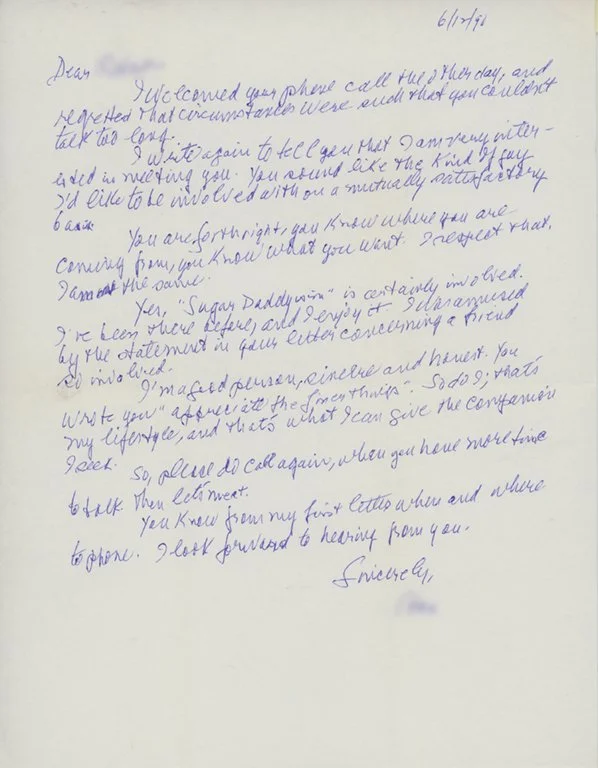 6/12/90
Dear
I welcomed your phone call the other day, and
regretted that circumstances were such that you couldn't
talk too long.
I write again to tell you that I am very inter-
ested in meeting you. You sound like the kind of guy
I'd like to be involved with on a mutually satisfactory
basis.
You are forthright, you know where you are
coming from, you know what you want. I respect that.
I am the same.
Yes, "Sugar Daddyism" is certainly involved.
I've been there before, and I enjoy it. I was amused
by the statement in your letter concerning a friend
so involved.
I'm a good person, sincere and honest. You
wrote you "appreciate the finer things". So do I; that's
my lifestyle, and that's what I can give the companion
I seek.
So, please do call again, when you have more time
to talk. Then let's meet.
You know from my first letter when and where
to phone. I look forward to hearing from you.
Sincerely,